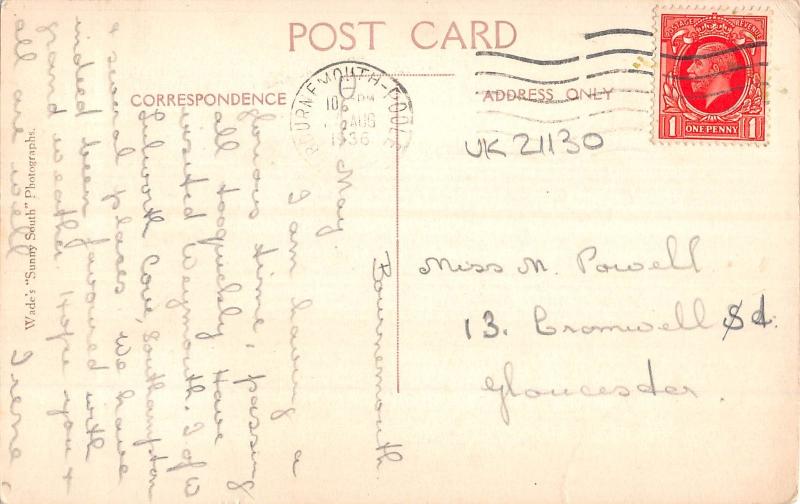 POST CARD
CORRESPONDENCE
ADDRESS ONLY
BOURNEMOUTH-POOLE
10 PM
AUG
1936
POSTAGE REVENUE
1 ONE PENNY 1
UK 21130
Miss M. Powell
13. Cromwell St.
Gloucester.
Bournemouth
May.
I am having a
glorious time, passing
all too quickly. Have
visited Weymouth. I of W
Lulworth Cove, Southampton
& several places. We have
indeed been favoured with
grand weather. Hope you &
all are well
Irene.
Wade's "Sunny South" Photographs.